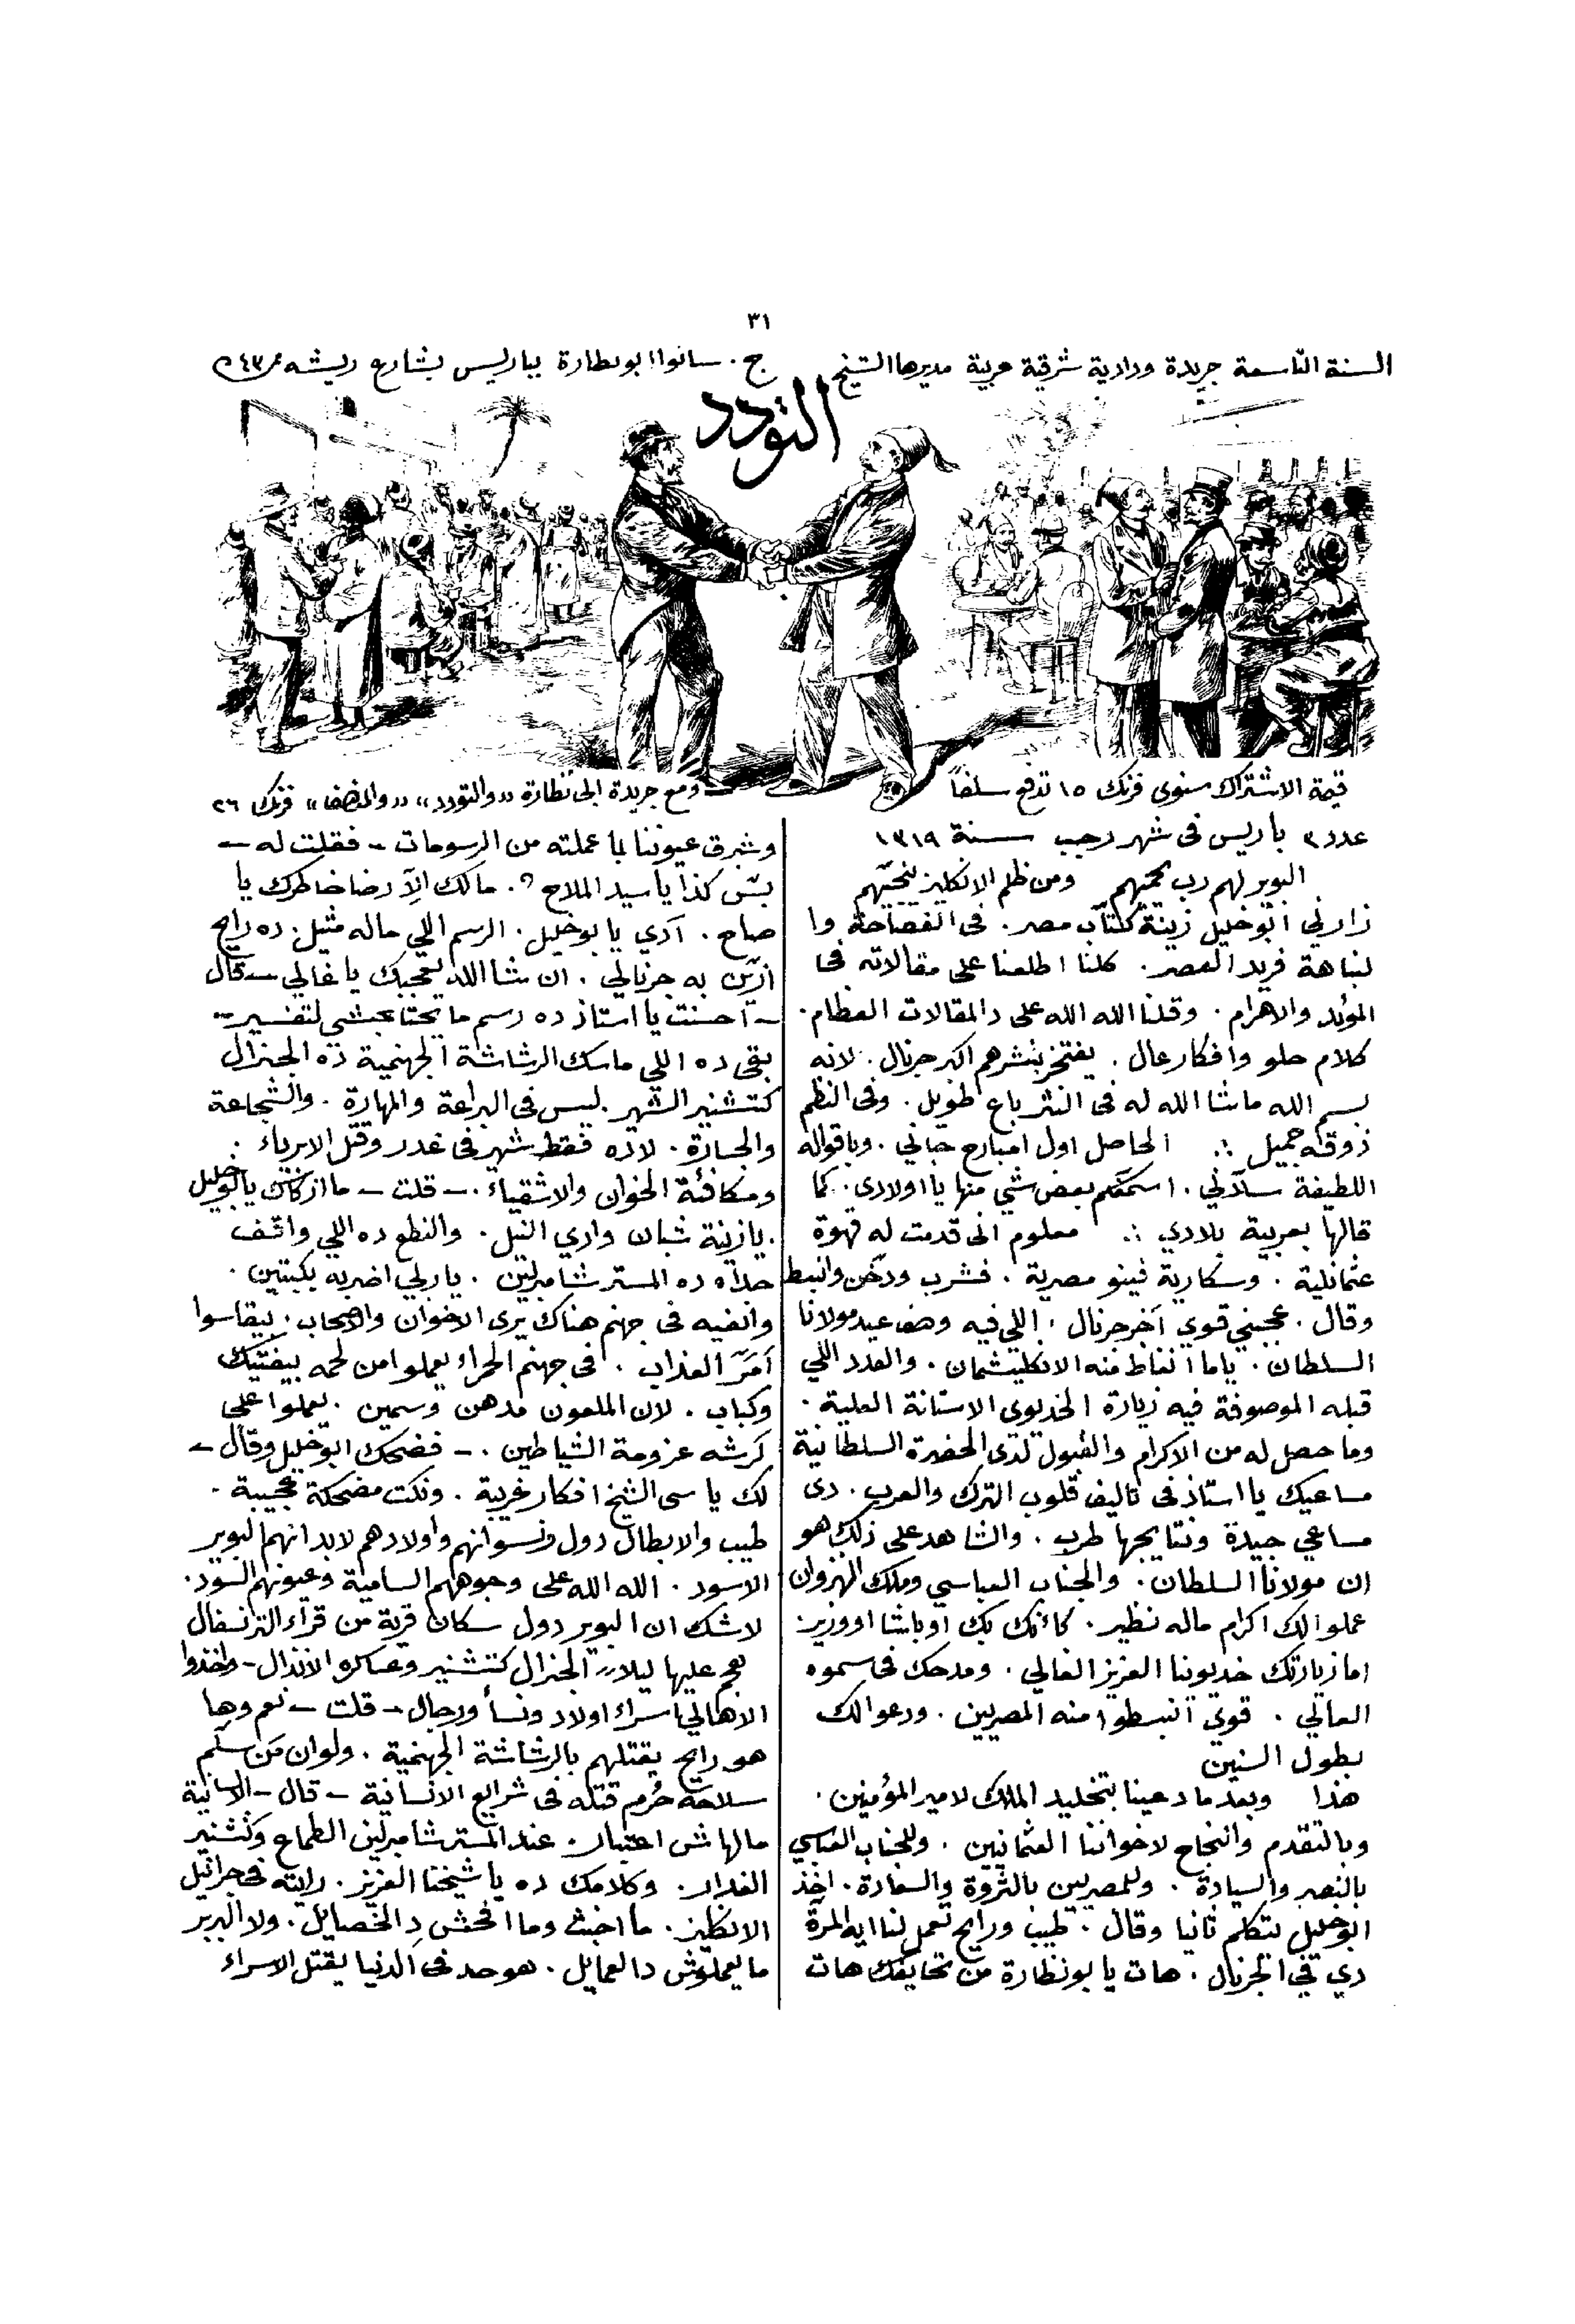 ٣١
السنة التاسعة جريدة ودادية شرقية عربية مديرها الشيخ ج. سانوا ابو نظارة بباريس بشارع ريشه نمر ٤٣
التودد
قيمة الاشتراك سنوي فرنك ١٥ تدفع سلفاً
ومع جريدة ابي نظارة ((والتودد)) ((والمنصف)) فرنك ٢٦
عدد ٣ باريس فى شهر رجب سنة ١٣١٩
البوير لهم رب يحميهم ومن ظلم الانكليز ينجيهم
زارني ابو خليل زينة كتاب مصر. فى الفصاحة وا
لنباهة فريد العصر. كلنا اطلعنا على مقالاته فى
المؤيد والاهرام. وقلنا الله الله على دالمقالات العظام.
كلام حلو وافكار عال. يفتخر بنشرهم اكبر جرنال. لانه
بسم الله ماشا الله له فى النثر باع طويل. وفى النظم
ذوقه جميل ∴ الحاصل اول امبارح جاني. وباقواله
اللطيفة سلاني. اسمعكم بعض شي منها يا اولادى. كما
قالها بعربية بلادي ∴ معلوم انى قدمت له قهوة
عثمانلية. وسكارية فينو مصرية. فشرب ودخن وانبسط
وقال. عجبني قوي آخر جرنال. اللي فيه وصف عيد مولانا
السلطان. ياما انغاظ منه الانكليشمان. والعدد اللي
قبله الموصوفة فيه زيارة الخديوى الاستانة العلية.
وما حصل له من الاكرام والقبول لدى الحضرة السلطانية
مساعيك يا استاذ فى تاليف قلوب الترك والعرب. دى
مساعي جيدة ونتايجها طرب. والشاهد على ذلك هو
ان مولانا السلطان. والجناب العباسي وملك
عملوا لك اكرام ماله نظير. كانك بك او باشا او وزير
اما زيارتك خديونا العزيز الغالي. ومدحك فى سموه
العالي. قوي انبسطوا منه المصريين. ودعوا لك
بطول السنين
هذا وبعد ما دعينا بتخليد الملك لامير المؤمنين.
وبالتقدم والنجاح لاخواننا العثمانيين. وللجناب العباسي
بالنصر والسيادة. وللمصريين بالثروة والسعادة. اخذ
ابو خليل يتكلم ثانيا وقال. طيب ورايح تعمل لنا ايه المرة
دي في الجرنال. هات يا بو نظارة من تحايفك هات
وشرق عيوننا بما عملته من الرسومات - فقلت له -
بس كذا يا سيد الملاح؟. مالك الا رضا خاطرك يا
صاح. آدي يا بو خليل. الرسم اللي ماله مثيل. ده رايح
ازين به جرنالي. ان شا الله يعجبك يا غالي - قال
- احسنت يا استاذ ده رسم ما يحتاجشي لتفسير -
بقى ده اللي ماسك الرشاشة الجهنمية ده الجنرال
كتشنير الشهير. ليس فى البراعة والمهارة. والشجاعة
والجسارة. لا ده فقط شهير فى غدر وقتل الابرياء.
ومكافئة الخوان والاشقياء. - قلت - ما ازكاك يا بو خليل
يا زينة شبان وادي النيل. والنطع ده اللي واقف
حداه ده المستر شامبرلين. يا ربي اضربه بكبتين.
وانفيه فى جهنم هناك يرى الاخوان والاصحاب. بيقاسوا
امَرّ العذاب. فى جهنم الحمراء يعملوا من لحمه بيفتيك
وكباب. لان الملعون مدهن وسمين. يعملوا على
كرشه عزومة الشياطين. - فضحك ابو خليل وقال -
لك يا سى الشيخ افكار غريبة. ونكت مضحكة عجيبة.
طيب والابطال دول ونسوانهم واولادهم لابد انهم البوير
الاسود. الله الله على وجوههم السامية وعيونهم السود.
لاشك ان البوير دول سكان قرية من قراء الترنسفال
هجم عليها ليلاً الجنرال كتشنير وعساكره الانذال - واخذوا
الاهالي اسراء اولاد ونسأ ورجال - قلت - نعم وها
هو رايح يقتلهم بالرشاشة الجهنمية. ولو ان من سلّم
سلاحه حُرم قتله فى شرايع الانسانية - قال - الانسانية
مالهاش اعتبار. عند المستر شامبرلين الطماع وكتشنير
الغدار. وكلامك ده يا شيخنا العزيز. رايته فى جرانيل
الانكليز. ما اخبث وما افحش دِ الخصايل. ولا البربر
ما يعملوش دا لعمايل. هو حد فى الدنيا يقتل الاسراء